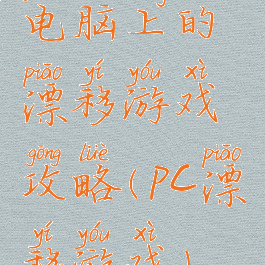 电脑上的
piāo yí yóu xì
漂移游戏
gōng lüè piāo
攻略(PC漂
yí yóu xì
移游戏)